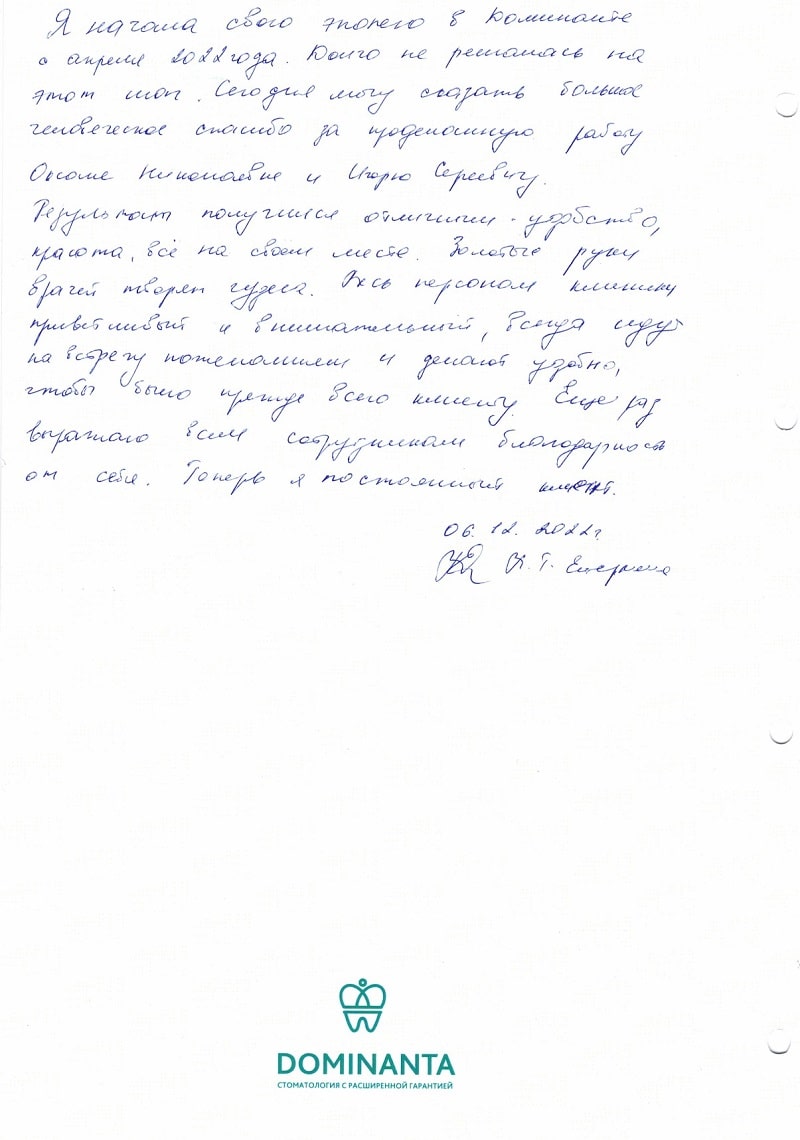 Я начала свою эпопею в Доминанте
с апреля 2022 года. Долго не решалась на
этот шаг. Сегодня могу сказать большое
человеческое спасибо за проделанную работу
Оксане Николаевне и Игорю Сергеевичу.
Результат получился отличным - удобство,
красота, всё на своем месте. Золотые руки
врачей творят чудеса. Весь персонал клиники
приветливый и внимательный, всегда идут
на встречу пожеланиям и делают удобно,
чтобы было прежде всего клиенту. Еще раз
выражаю всем сотрудникам благодарность
от себя. Теперь я постоянный клиент.
06.12.2022г.
Т.
DOMINANTA
СТОМАТОЛОГИЯ С РАСШИРЕННОЙ ГАРАНТИЕЙ